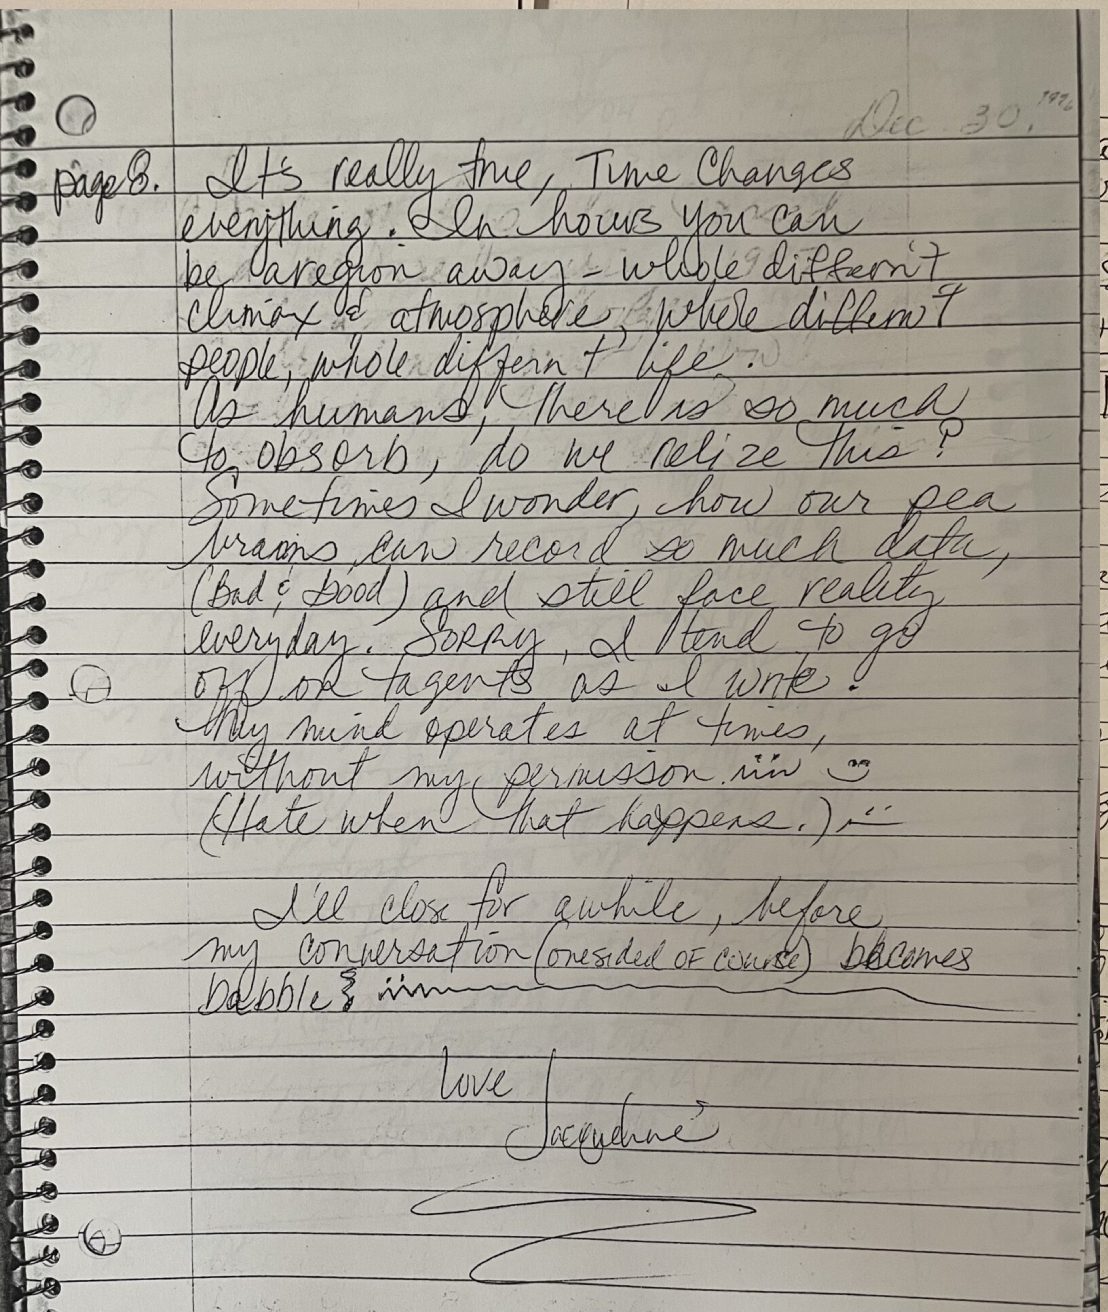 Dec 30, 1996
page 8. It's really true, Time Changes
everything. In hours you can
be aregion away - whole differn't
climax & atmosphere, whole differn't
people, whole differn't life.
As humans, there is so much
to obsorb, do we relize this?
Sometimes I wonder, how our pea
brains can record so much data,
(Bad & Good) and still face reality
everyday. Sorry, I tend to go
off on tagents as I write.
My mind operates at times,
without my permisson.
(Hate when that happens.)
I'll close for awhile, before
my conversation (onesided of course) becomes
babble
Love
Jacqueline